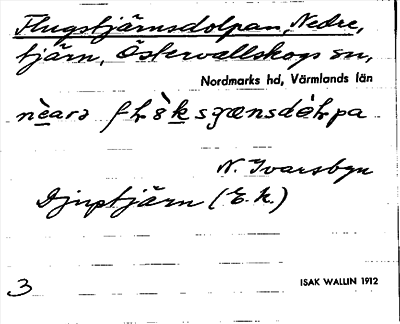 Flugstjärnsdolpan, Nedre,
tjärn, Östervallskogs sn,
Nordmarks hd, Värmlands län
N. Ivarsbyn
Djuptjärn (E.K.)
3
ISAK WALLIN 1912